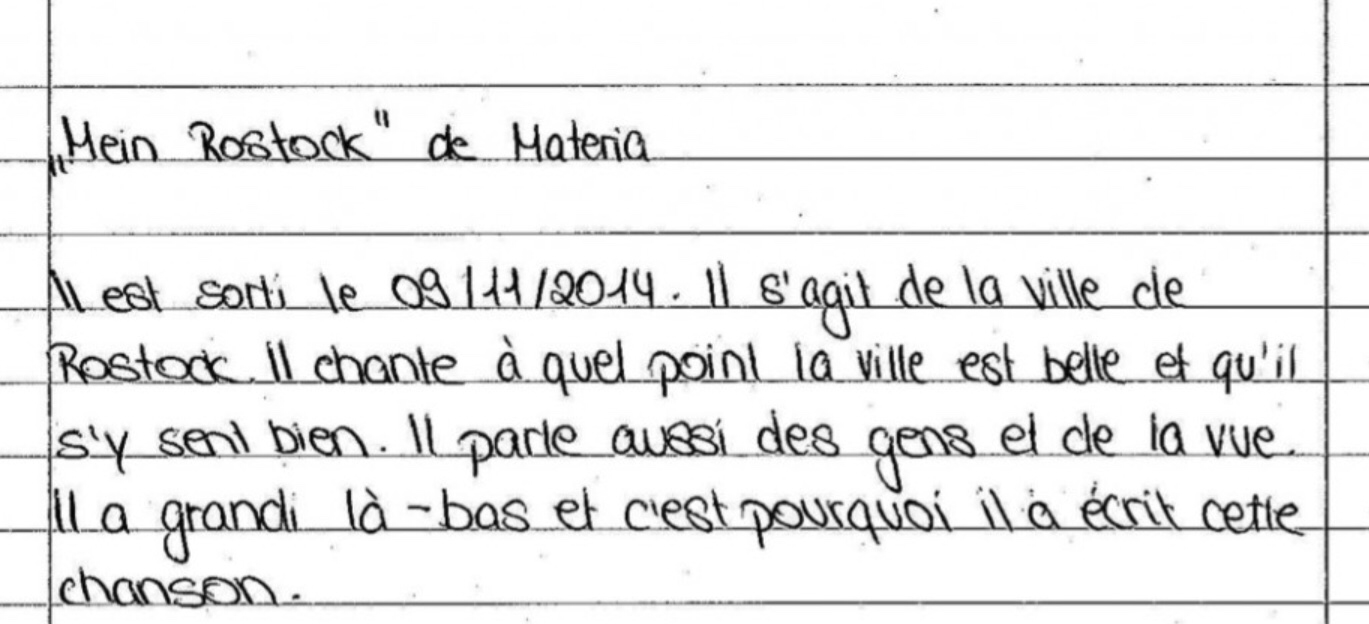 „Mein Rostock" de Materia
Il est sorti le 09/11/2014. Il s'agit de la ville de
Rostock. Il chante à quel point la ville est belle et qu'il
s'y sent bien. Il parle aussi des gens et de la vue.
Il a grandi là-bas et c'est pourquoi il a écrit cette
chanson.